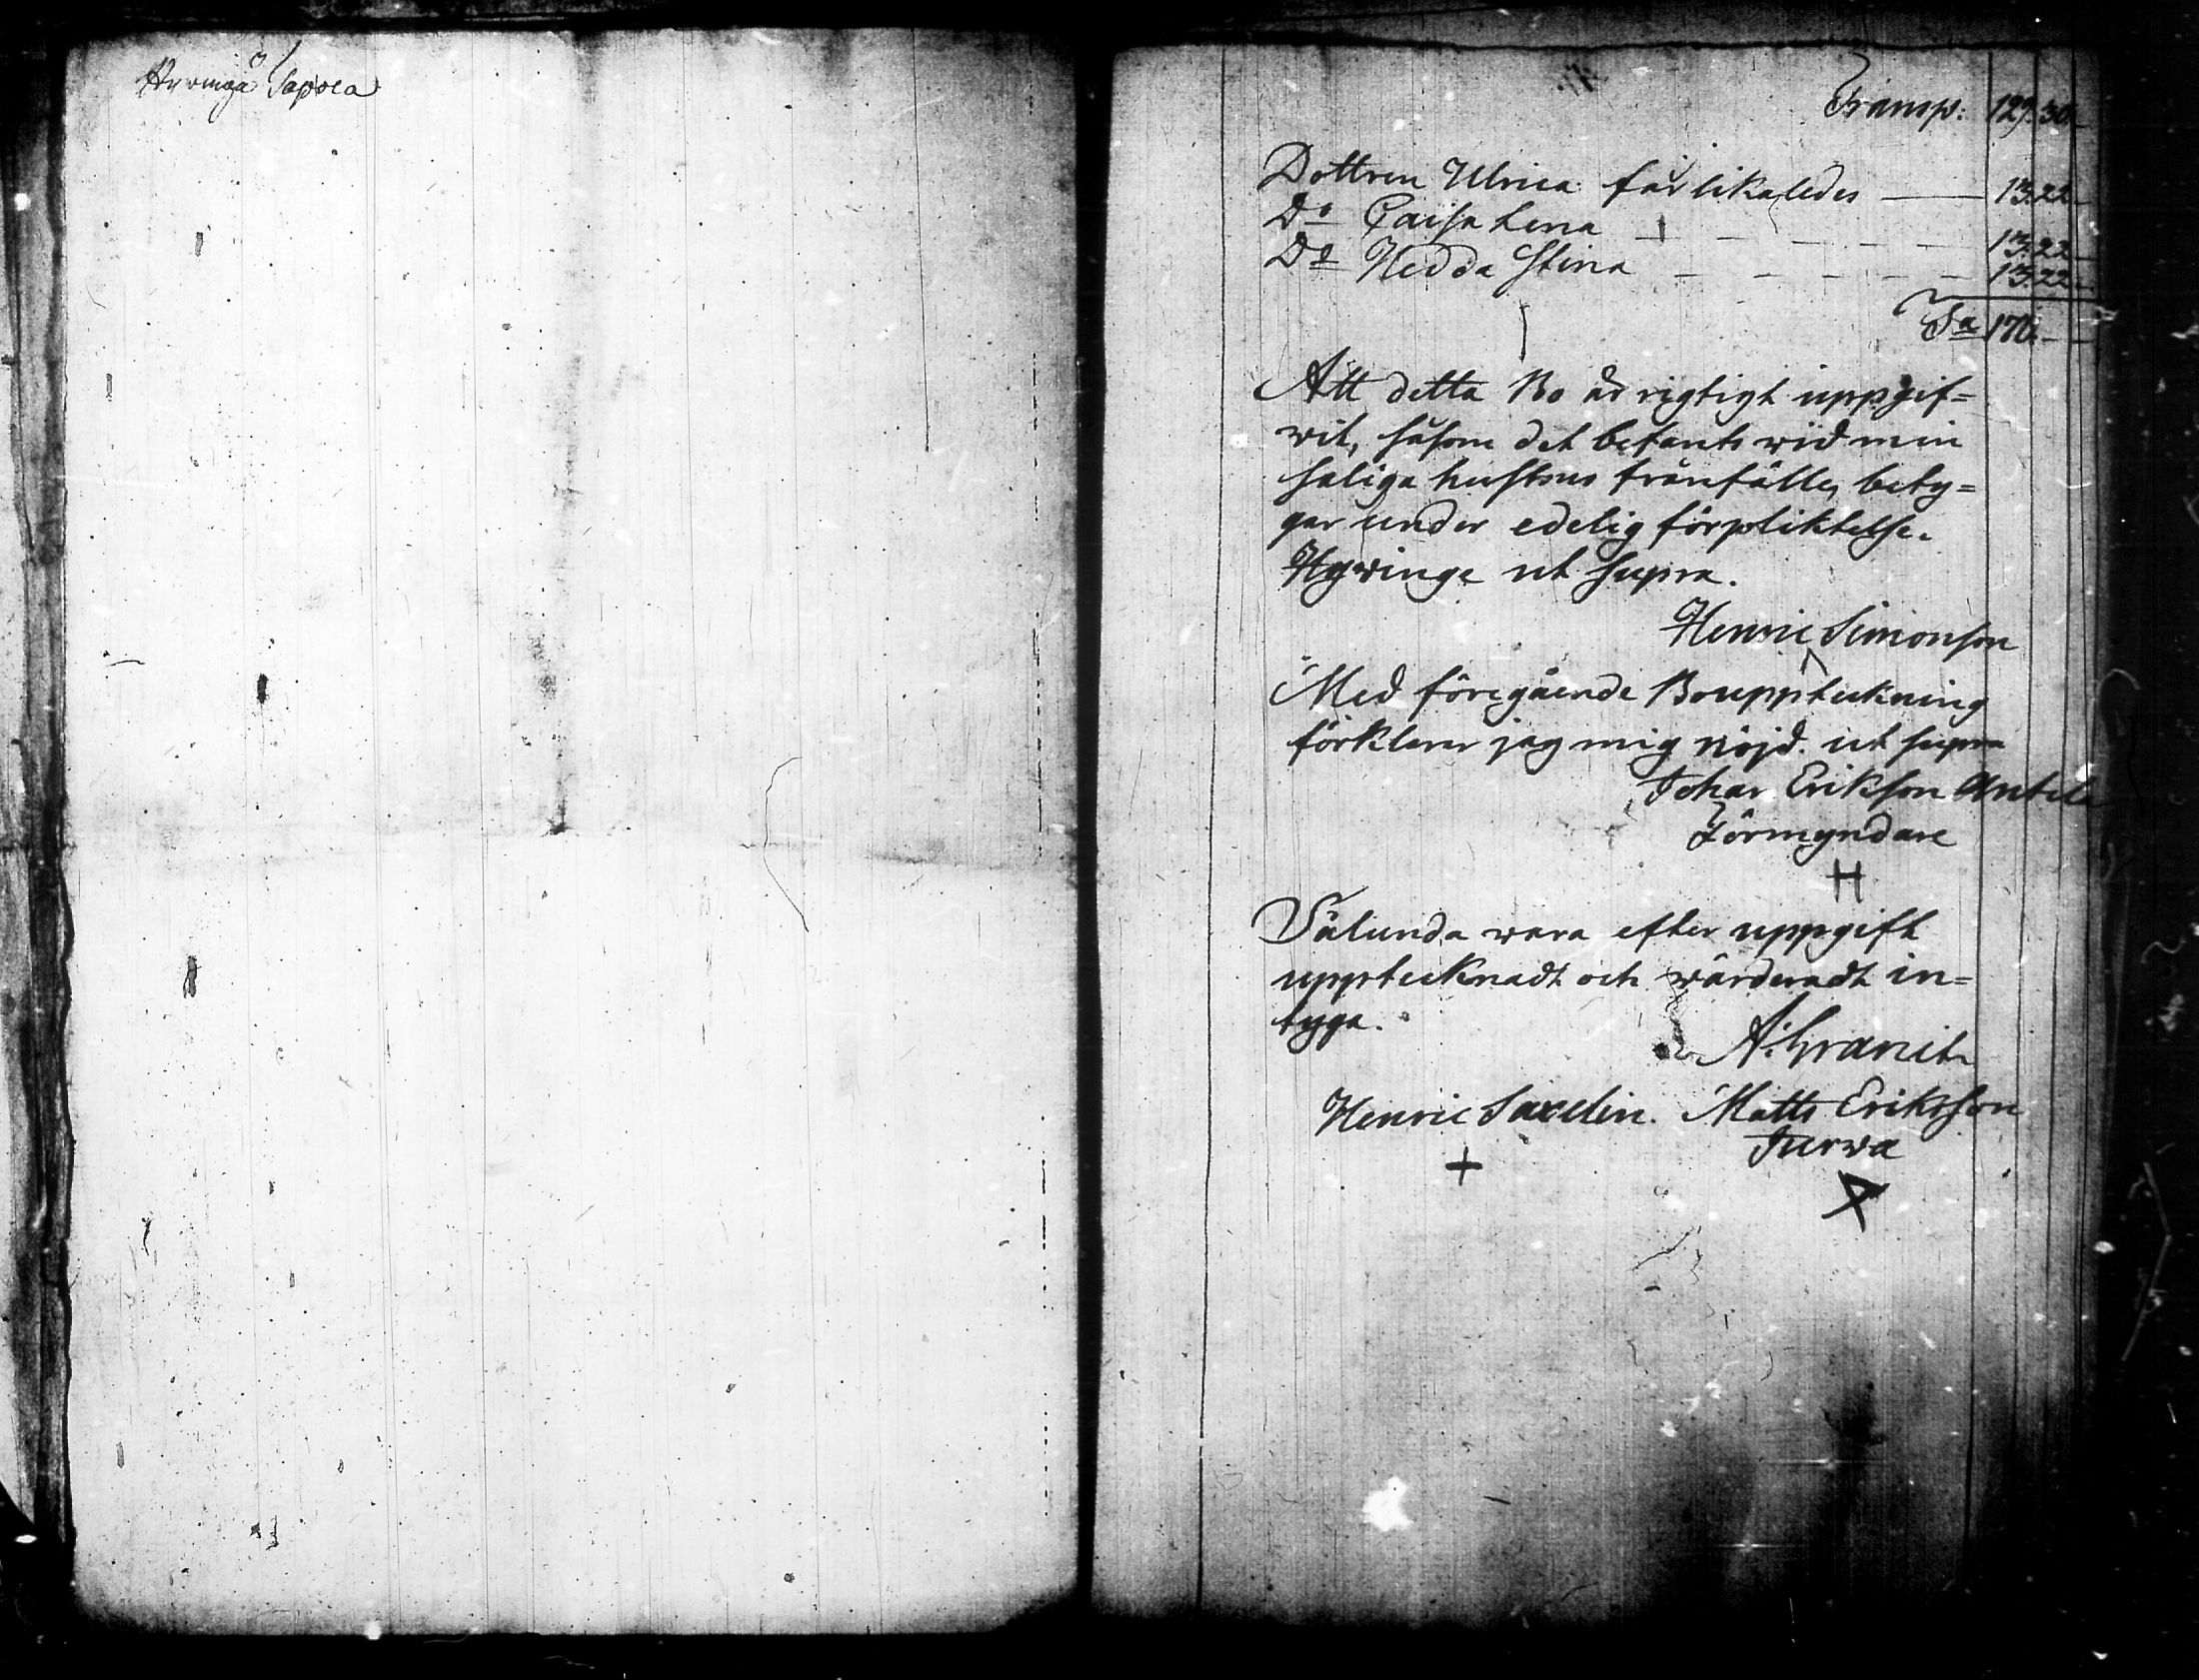 Hyvinge Sapoca
Transp: 129.30.
Dottren Ulrica får likaledes — 13.22.
Do Caisa Lena — 13.22
Do Hedda Stina — 13.22
Sa 170.—
Att detta Bo är rigtigt uppgif=
wit, såsom det befants wid min
saliga hustrus frånfälle, bety=
gar under edelig förpliktelse.
Hywinge ut supra.
Henric Simonson
Med föregående Bouppteckning
förklarar jag mig nöjd. ut supra
Johan Erikson Anttila
Förmyndare
H
Sålunda wara efter uppgift
upptecknadt och wärderadt in=
tyga.
A: Granit
Henric Saxelin. Matts Eriksson
Turwa